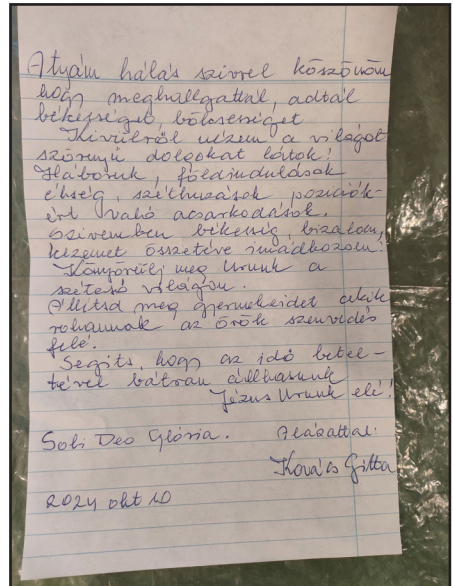 Atyám hálás szivvel köszönöm
hogy meghallgattál, adtál
békességet, bölcsességet
Kivülről nézem a világot
szörnyű dolgokat látok!
Háboruk, földindulások
éhség, széthuzások pozíciók-
ért való acsarkodások.
Szivemben békesség, bizalom,
kezemet összetéve imádkozom!
Könyörülj meg Urunk a
széteső világon.
Állitsd meg gyermekeidet akik
rohannak az örök szenvedés
felé.
Segits, hogy az idő betel-
tével bátran állhasunk
Jézus Urunk elé!
Soli Deo Glória. Alázattal:
Kovács Gitta
2024 okt 10